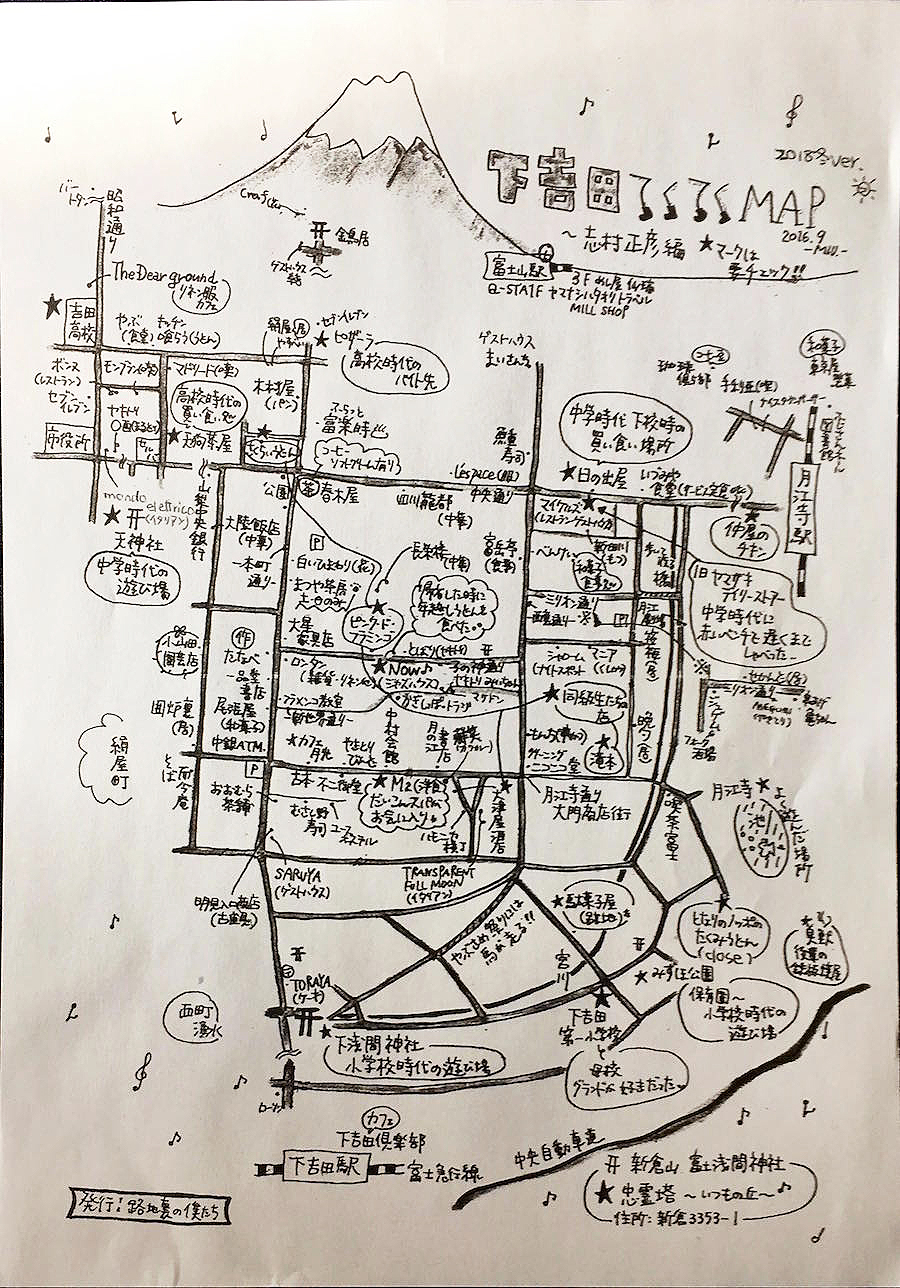 2018冬ver.
下吉田てくてくMAP
2016.9
-MILL-
～志村正彦編
★マークは
要チェック!!
金鳥居
ゲストハウス
富士山駅
Q-STA1F ヤマナシハタオリトラベル
MILL SHOP
バー
昭和通り
The Dear ground
リネン服
カフェ
★吉田
高校
やぶ
(食堂)
キッチン
喰らう(うどん)
絹屋町
セブンイレブン
★ピザーラ
高校時代の
バイト先
ゲストハウス
まいさんち
ボンヌ
(レストラン)
モンブラン(喫)
マドリード(喫)
木村屋
(パン)
高校時代の
買い食い
★天狗茶屋
★さくらうどん
セブン
イレブン
市役所
ふらっと
富楽時
コーヒー
ソフトクリームあり
鮨
寿司
L'espace(服)
中学時代 下校時の
買い食い場所
★日の出屋
いづみや
食堂
珈琲
倶楽部
手打り庵(喫)
ナイスタウンバーサー
和菓子
東京屋
製菓
月江寺駅
★仲屋の
チキン
mondo
elettrico
(イタリアン)
★天神社
中学時代の
遊び場
山梨中央銀行
公園
茶 春木屋
四川龍都
(中華)
中央通り
★マイケルズ
(レストランゲストハウス)
大陸飯店
(中華)
本町
通り
P
白いひまわり(花)
まつや茶房
大星
家具店
長楽楼
(中華)
富岳亭
(食事)
★ピンク・ド・
フラミンゴ
帰省した時に
年越しうどんを
食べた
べんけい
新田川
和菓子
ミリオン通り
月江
劇場
旧ヤマザキ
デイリーストアー
中学時代に
赤いベンチで遅くまで
しゃべった
小山田
園芸店
作 たなべ
一品堂
書店
ロンタン
(雑貨・リネン)
★NOW♪
(ジャズハウス)
子の神通り
かぎしっぽ
シャローム
(ナイトスポット)
マニア
笹梅(居)
せかんど(居)
ミリオン通り
囲炉裏
(居)
尾張屋
(和菓子)
フラメンコ教室
新世界通り
★同級生たちの
店
絹屋町
中銀ATM
★カフェ
月光
中村会館
月の江
書店
★滝本
クリーニング
ニコニコ堂
晩夕(居)
P
そば
おおむら
茶舗
古本 不二御堂
★M2(洋食)
だいこんスパが
お気に入り
★大津屋酒店
月江寺通り
大門商店街
喫茶富士
月江寺★
よく遊んだ場所
池
むさし野
寿司
ユース
ホステル
ハモニカ
横丁
SARUYA
(ゲストハウス)
TRANSPARENT
FULL MOON
(イタリアン)
明見入口商店
(古道具)
やぶさめ祭り日は
馬が走る!!
★駄菓子屋
宮川
★となりのノッポの
たくみうどん
(close)
★みずほ公園
保育園～
小学校時代の
遊び場
TORAYA
(ケーキ)
西町
湧水
★下浅間神社
小学校時代の遊び場
★下吉田
第一小学校
と
母校
グランドが好きだった
ローソン
カフェ
下吉田倶楽部
下吉田駅
富士急行線
中央自動車道
新倉山 富士浅間神社
★忠霊塔 ～いつもの丘～♪
住所:新倉3353-1
発行:路地裏の僕たち